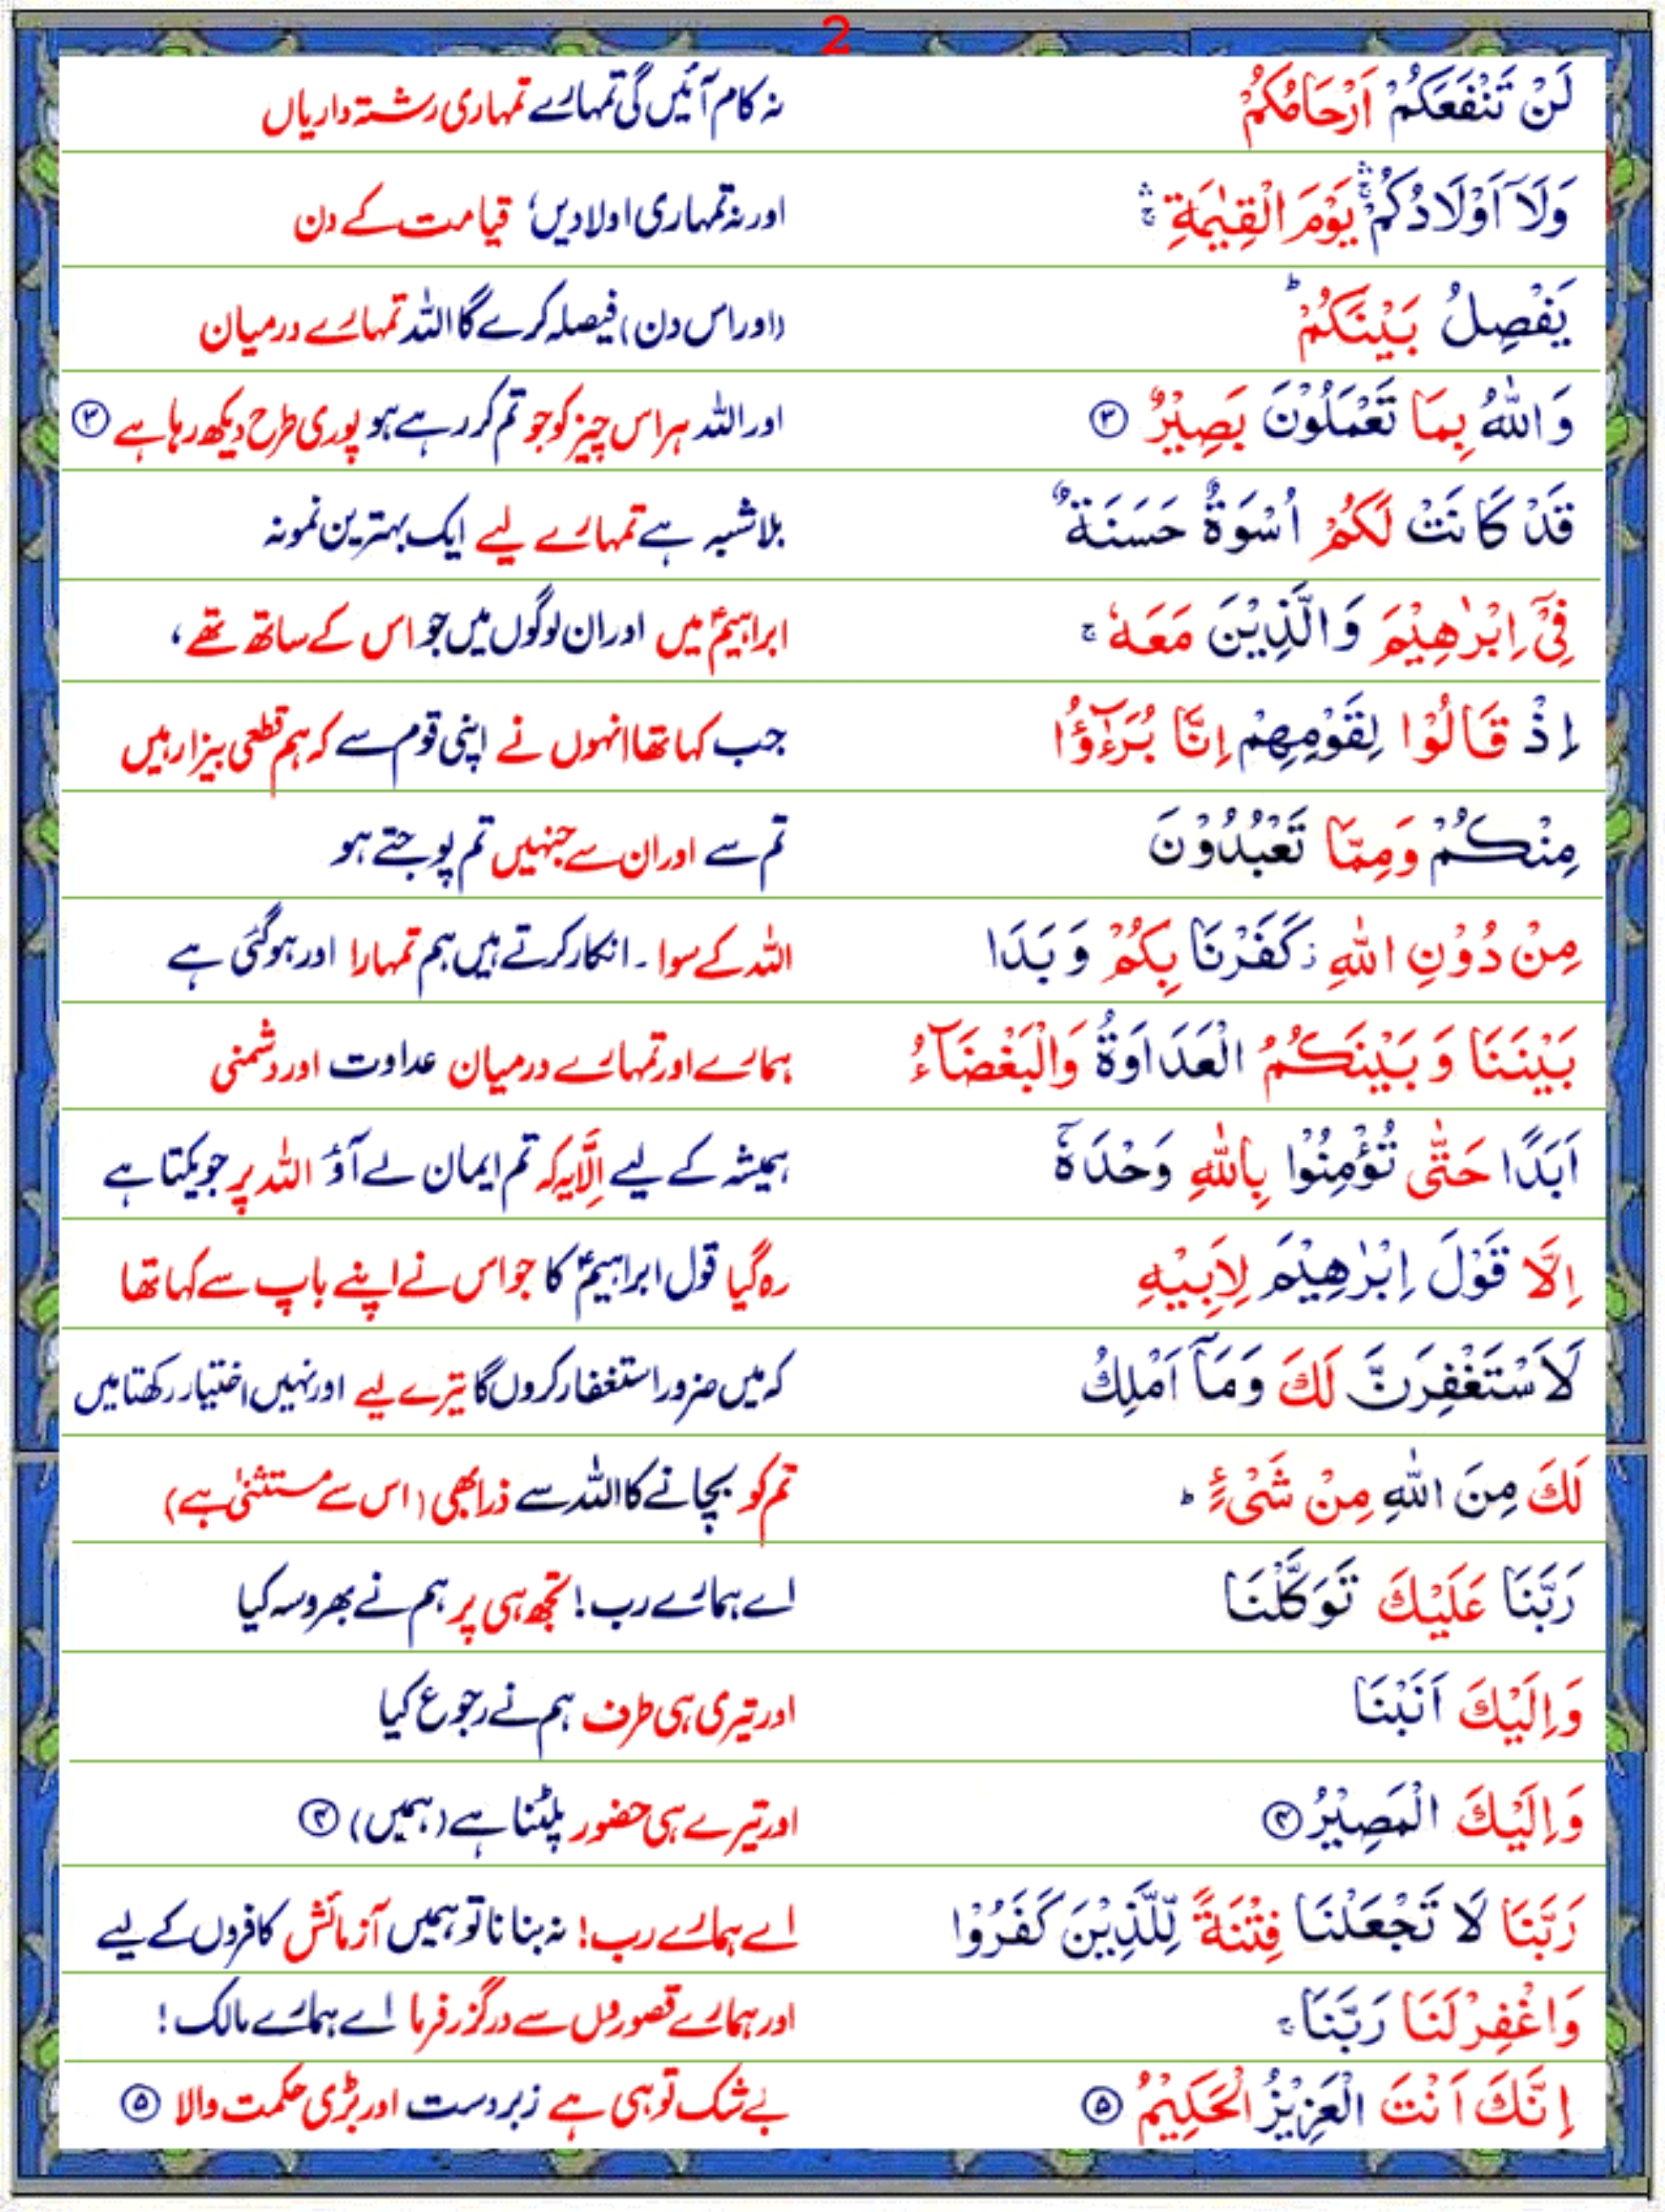 2
لَنْ تَنْفَعَكُمْ اَرْحَامُكُمْ نہ کام آئیں گی تمہارے تمہاری رشتہ داریاں
وَلَآ اَوْلَادُكُمْ ۛۚ يَوْمَ الْقِيٰمَةِ ۛۚ اور نہ تمہاری اولادیں، قیامت کے دن
يَفْصِلُ بَيْنَكُمْ ؕ (اور اس دن) فیصلہ کرے گا اللہ تمہارے درمیان
وَاللّٰهُ بِمَا تَعْمَلُوْنَ بَصِيْرٌ ۝۳ اور اللہ ہر اس چیز کو جو تم کر رہے ہو پوری طرح دیکھ رہا ہے ۝۳
قَدْ كَانَتْ لَكُمْ اُسْوَةٌ حَسَنَةٌ بلاشبہ ہے تمہارے لیے ایک بہترین نمونہ
فِيْٓ اِبْرٰهِيْمَ وَالَّذِيْنَ مَعَهٗ ۚ ابراہیمؑ میں اور ان لوگوں میں جو اس کے ساتھ تھے،
اِذْ قَالُوْا لِقَوْمِهِمْ اِنَّا بُرَءٰٓؤُا جب کہا تھا انہوں نے اپنی قوم سے کہ ہم قطعی بیزار ہیں
مِنْكُمْ وَمِمَّا تَعْبُدُوْنَ تم سے اور ان سے جنہیں تم پوجتے ہو
مِنْ دُوْنِ اللّٰهِ ز كَفَرْنَا بِكُمْ وَبَدَا اللہ کے سوا۔ انکار کرتے ہیں ہم تمہارا اور ہو گئی ہے
بَيْنَنَا وَبَيْنَكُمُ الْعَدَاوَةُ وَالْبَغْضَآءُ ہمارے اور تمہارے درمیان عداوت اور دشمنی
اَبَدًا حَتّٰى تُؤْمِنُوْا بِاللّٰهِ وَحْدَهٗٓ ہمیشہ کے لیے اِلَّا یہ کہ تم ایمان لے آؤ اللہ پر جو یکتا ہے
اِلَّا قَوْلَ اِبْرٰهِيْمَ لِاَبِيْهِ رہ گیا قول ابراہیمؑ کا جو اس نے اپنے باپ سے کہا تھا
لَاَسْتَغْفِرَنَّ لَكَ وَمَآ اَمْلِكُ کہ میں ضرور استغفار کروں گا تیرے لیے اور نہیں اختیار رکھتا میں
لَكَ مِنَ اللّٰهِ مِنْ شَيْءٍ ؕ تم کو بچانے کا اللہ سے ذرا بھی (اس سے مستثنیٰ ہے)
رَبَّنَا عَلَيْكَ تَوَكَّلْنَا اے ہمارے رب! تجھ ہی پر ہم نے بھروسہ کیا
وَاِلَيْكَ اَنَبْنَا اور تیری ہی طرف ہم نے رجوع کیا
وَاِلَيْكَ الْمَصِيْرُ ۝۴ اور تیرے ہی حضور پلٹنا ہے (ہمیں) ۝۴
رَبَّنَا لَا تَجْعَلْنَا فِتْنَةً لِّلَّذِيْنَ كَفَرُوْا اے ہمارے رب! نہ بنانا تو ہمیں آزمائش کافروں کے لیے
وَاغْفِرْ لَنَا رَبَّنَا ۚ اور ہمارے قصوروں سے درگزر فرما اے ہمارے مالک!
اِنَّكَ اَنْتَ الْعَزِيْزُ الْحَكِيْمُ ۝۵ بے شک تو ہی ہے زبردست اور بڑی حکمت والا ۝۵